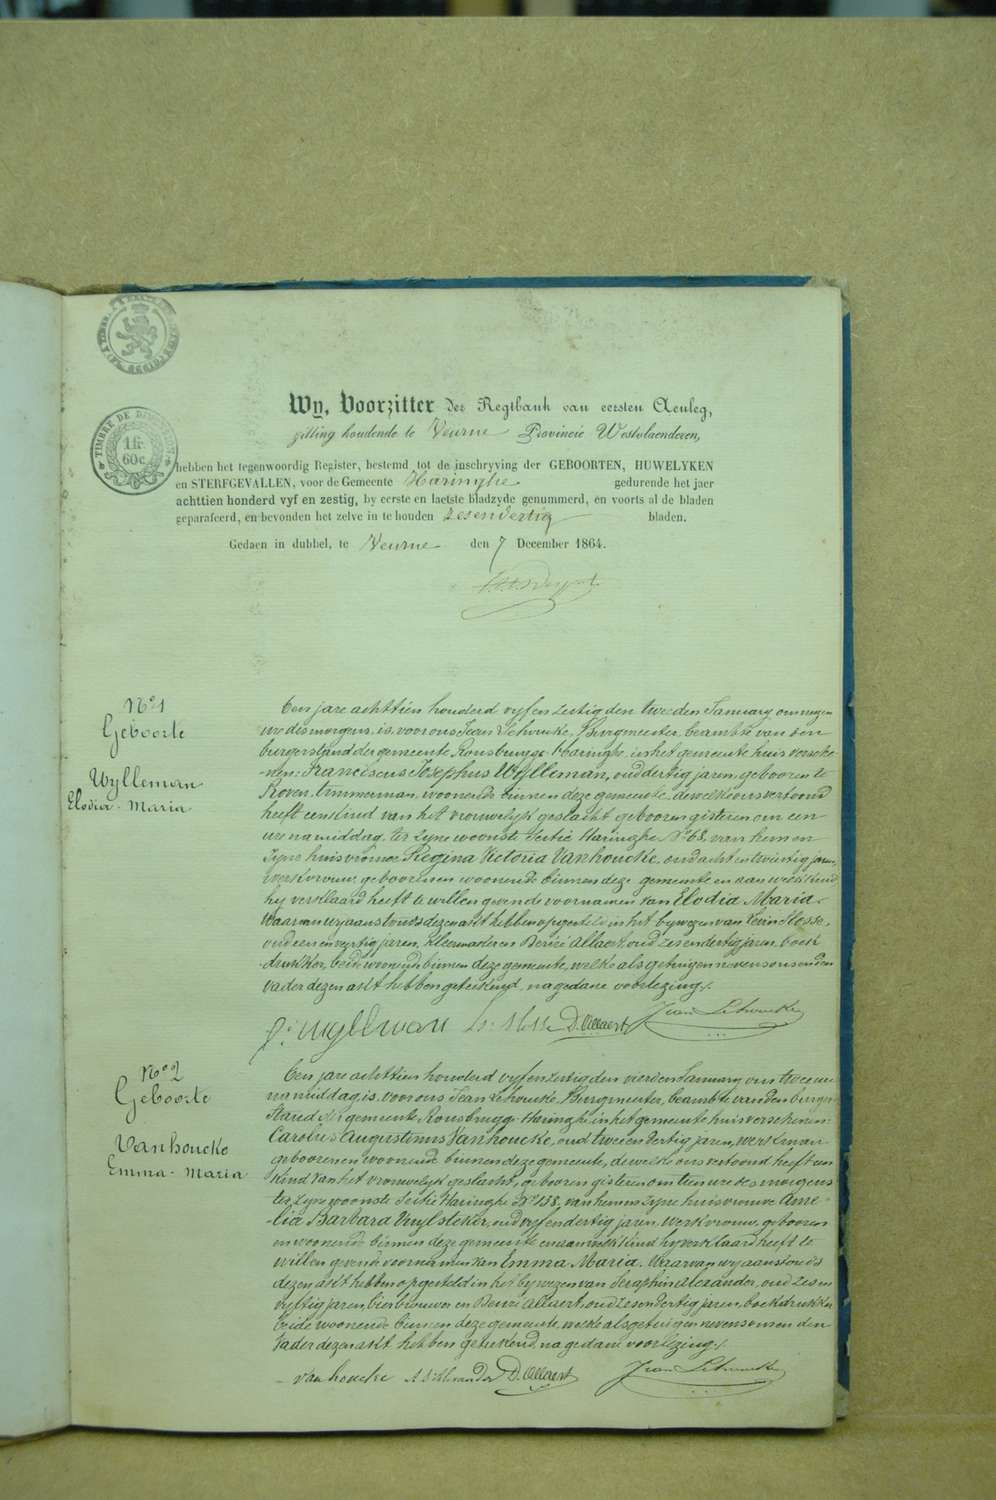 TIMBRE DE DIMENSION
1 fr.
60 c.
Wy, Voorzitter der Regtbank van eersten Aenleg,
zitting houdende te Veurne Provincie Westvlaenderen,
hebben het tegenwoordig Register, bestemd tot de inschryving der GEBOORTEN, HUWELYKEN
en STERFGEVALLEN, voor de Gemeente Haringhe gedurende het jaer
achttien honderd vyf en zestig, by eerste en laetste bladzyde genummerd, en voorts al de bladen
geparafeerd, en bevonden het zelve in te houden zesendertig bladen.
Gedaen in dubbel, te Veurne den 7 December 1864.
N° 1
Geboorte
Wylleman
Elodia-Maria
Een jare achttien honderd vyfenzestig den tweeden January om negen
ure des morgens, is, voor ons Jean Burgmeester, beambte van den
burgerstand der gemeente Rousbrugge-Haringhe, in het gemeente huis versche-
nen: Franciscus Josephus Wylleman, oud dertig jaren, gebooren te
timmerman, woonende binnen deze gemeente, dewelke ons vertoond
heeft een kind van het vrouwelyk geslacht gebooren gisteren om een
ure na middag, ter zyne woonste sectie Haringhe N° 68, van hem en
zyne huisvrouw Regina Victoria Vanhoucke, oud acht en twintig jaren,
werkvrouw, gebooren en woonende binnen deze gemeente en aan welk kind
hy verklaard heeft te willen geven de voornamen van Elodia Maria.
Waarvan wy aanstonds dezen akt hebben opgesteld in het bywezen van
oud een en veertig jaren, kleermaker en Désiré Allaert, oud zesendertig jaren, boek
drukker, beide woonende binnen deze gemeente, welke als getuigen nevens ons en den
vader dezen akt hebben geteekend, na gedane voorlezing.
Wylleman D. Allaert Jean
N° 2
Geboorte
Vanhoucke
Emma-Maria
Een jare achttien honderd vyfenzestig den vierden January om twee ure
namiddag, is, voor ons Jean Burgmeester, beambte van den burger
stand der gemeente Rousbrugge-Haringhe in het gemeente huis verschenen:
Carolus Augustinus Vanhoucke, oud twee en dertig jaren, werkman
gebooren en woonende binnen deze gemeente, dewelke ons vertoond heeft een
kind van het vrouwelyk geslacht, gebooren gisteren om tien ure des morgens
ter zyne woonste sectie Haringhe N° 138, van hem en zyne huisvrouwe Ame-
lia Barbara Vuylsteker, oud vyfendertig jaren, werkvrouw, gebooren
en woonende binnen deze gemeente en aan welk kind hy verklaard heeft te
willen geven de voornamen van Emma Maria. Waarvan wy aanstonds
dezen akt hebben opgesteld in het bywezen van Seraphin Alexander, oud zes en
vyftig jaren, bierbrouwer en Désiré Allaert, oud zesendertig jaren, boekdrukker
beide woonende binnen deze gemeente, welke als getuigen nevens ons en den
vader dezen akt hebben geteekend, na gedane voorlezing.
Vanhoucke Alexander D. Allaert Jean